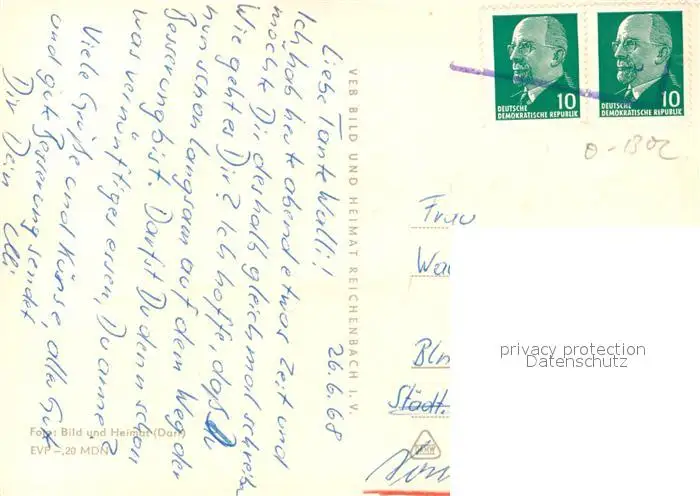 Liebe Tante Walli! 26.6.68
Ich hab heute abend etwas Zeit und
möchte Dir deshalb gleich mal schreiben
Wie geht es Dir? Ich hoffe, daß Du
nun schon langsam auf dem Weg der
Besserung bist. Darfst Du denn schon
was vernünftiges essen, Du arme?
Viele Grüße und Küsse, alles Gute
und gute Besserung sendet
Dir Dein Uli
VEB BILD UND HEIMAT REICHENBACH I. V.
Foto: Bild und Heimat (Darr)
EVP –,20 MDN
10
DEUTSCHE
DEMOKRATISCHE REPUBLIK
10
DEUTSCHE
DEMOKRATISCHE REPUBLIK
Frau
Bln
Städt.
privacy protection
Datenschutz